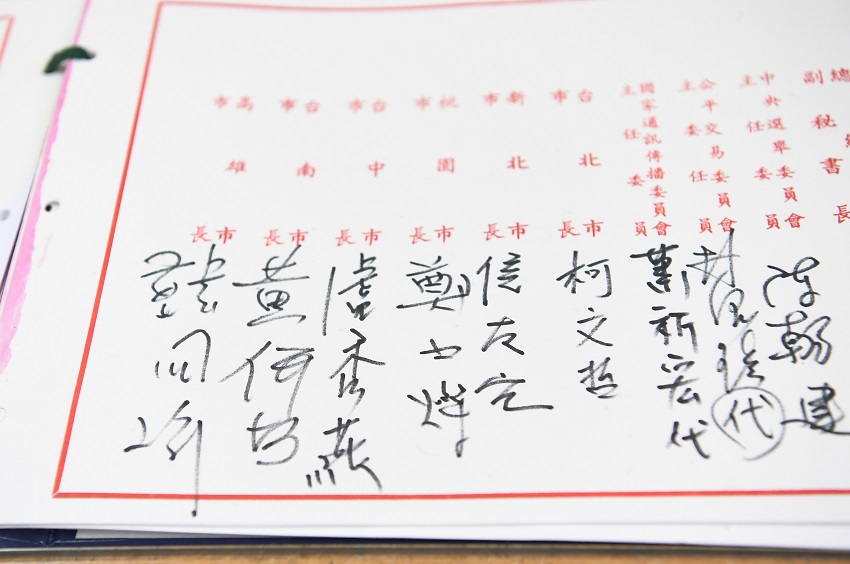 副秘書長
中央選舉委員會
主任委員
陳朝建
公平交易委員會
主任委員
代
國家通訊傳播委員會
主任委員
蕭祈宏代
台北市
市長
柯文哲
新北市
市長
侯友宜
桃園市
市長
鄭文燦
台中市
市長
盧秀燕
台南市
市長
黃偉哲
高雄市
市長
韓國瑜